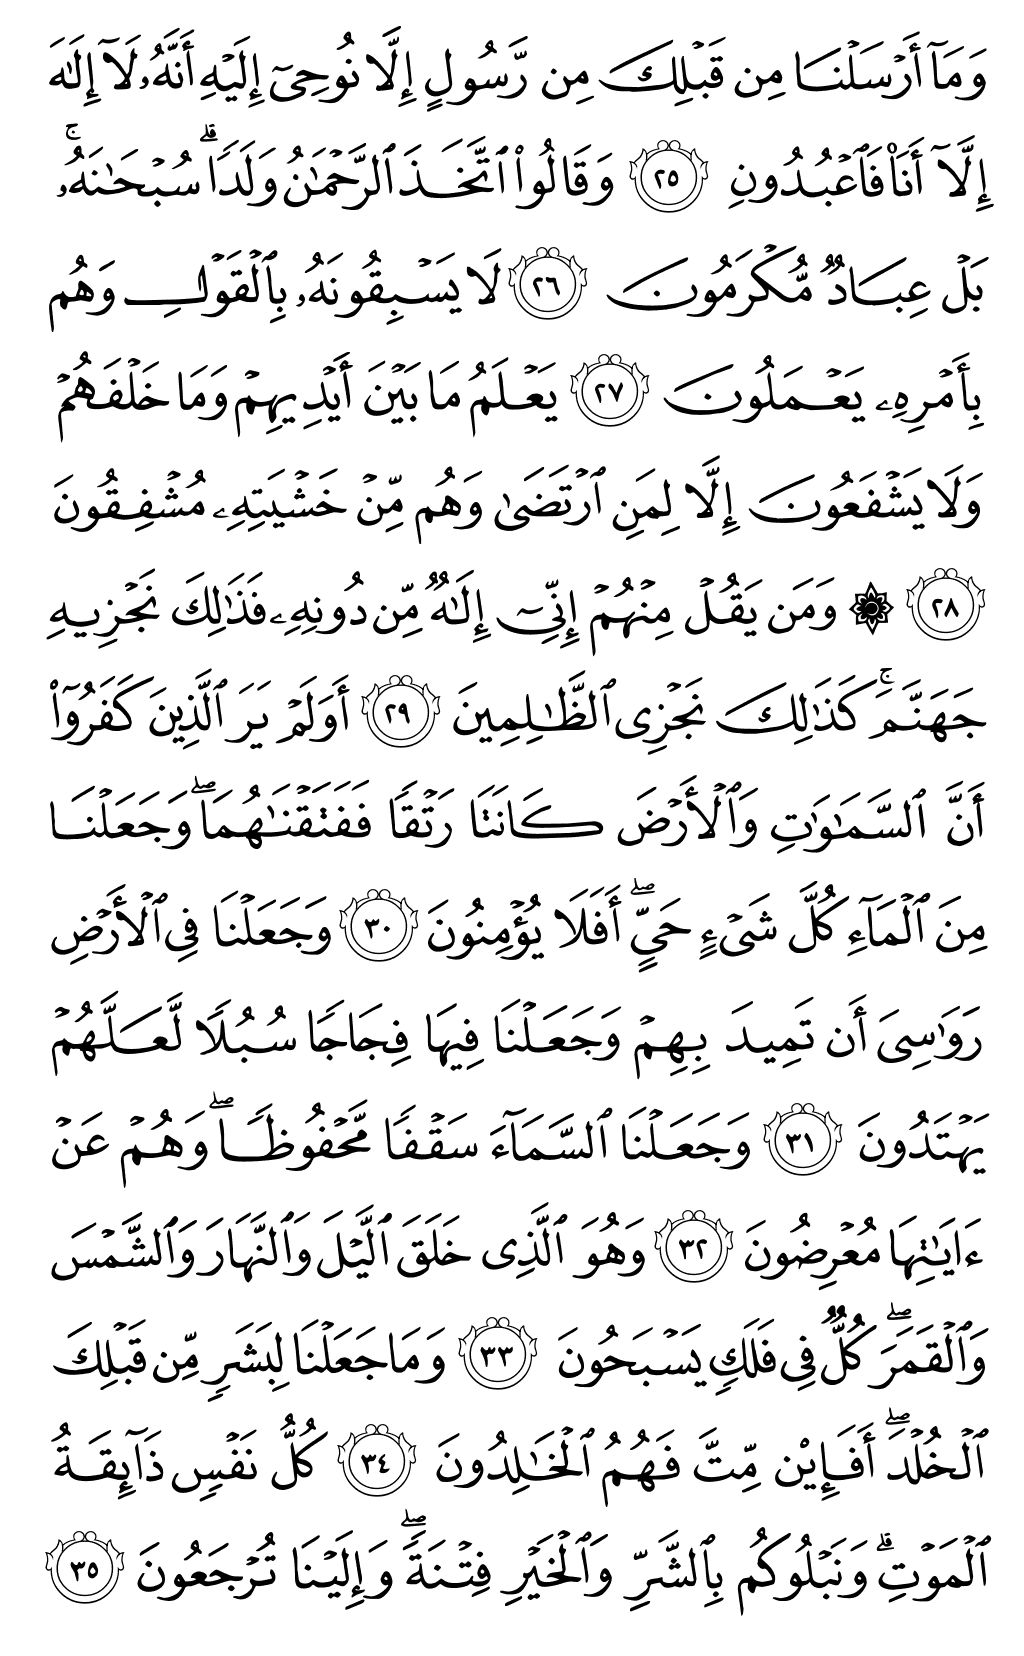 وَمَآ أَرۡسَلۡنَا مِن قَبۡلِكَ مِن رَّسُولٍ إِلَّا نُوحِيٓ إِلَيۡهِ أَنَّهُۥ لَآ إِلَٰهَ
إِلَّآ أَنَا۠ فَٱعۡبُدُونِ ٢٥ وَقَالُواْ ٱتَّخَذَ ٱلرَّحۡمَٰنُ وَلَدٗاۗ سُبۡحَٰنَهُۥۚ
بَلۡ عِبَادٞ مُّكۡرَمُونَ ٢٦ لَا يَسۡبِقُونَهُۥ بِٱلۡقَوۡلِ وَهُم
بِأَمۡرِهِۦ يَعۡمَلُونَ ٢٧ يَعۡلَمُ مَا بَيۡنَ أَيۡدِيهِمۡ وَمَا خَلۡفَهُمۡ
وَلَا يَشۡفَعُونَ إِلَّا لِمَنِ ٱرۡتَضَىٰ وَهُم مِّنۡ خَشۡيَتِهِۦ مُشۡفِقُونَ
٢٨ ۞ وَمَن يَقُلۡ مِنۡهُمۡ إِنِّيٓ إِلَٰهٞ مِّن دُونِهِۦ فَذَٰلِكَ نَجۡزِيهِ
جَهَنَّمَۚ كَذَٰلِكَ نَجۡزِي ٱلظَّٰلِمِينَ ٢٩ أَوَلَمۡ يَرَ ٱلَّذِينَ كَفَرُوٓاْ
أَنَّ ٱلسَّمَٰوَٰتِ وَٱلۡأَرۡضَ كَانَتَا رَتۡقٗا فَفَتَقۡنَٰهُمَاۖ وَجَعَلۡنَا
مِنَ ٱلۡمَآءِ كُلَّ شَيۡءٍ حَيٍّۚ أَفَلَا يُؤۡمِنُونَ ٣٠ وَجَعَلۡنَا فِي ٱلۡأَرۡضِ
رَوَٰسِيَ أَن تَمِيدَ بِهِمۡ وَجَعَلۡنَا فِيهَا فِجَاجٗا سُبُلٗا لَّعَلَّهُمۡ
يَهۡتَدُونَ ٣١ وَجَعَلۡنَا ٱلسَّمَآءَ سَقۡفٗا مَّحۡفُوظٗاۖ وَهُمۡ عَنۡ
ءَايَٰتِهَا مُعۡرِضُونَ ٣٢ وَهُوَ ٱلَّذِي خَلَقَ ٱلَّيۡلَ وَٱلنَّهَارَ وَٱلشَّمۡسَ
وَٱلۡقَمَرَۖ كُلّٞ فِي فَلَكٖ يَسۡبَحُونَ ٣٣ وَمَا جَعَلۡنَا لِبَشَرٖ مِّن قَبۡلِكَ
ٱلۡخُلۡدَۖ أَفَإِيْن مِّتَّ فَهُمُ ٱلۡخَٰلِدُونَ ٣٤ كُلُّ نَفۡسٖ ذَآئِقَةُ
ٱلۡمَوۡتِۗ وَنَبۡلُوكُم بِٱلشَّرِّ وَٱلۡخَيۡرِ فِتۡنَةٗۖ وَإِلَيۡنَا تُرۡجَعُونَ ٣٥